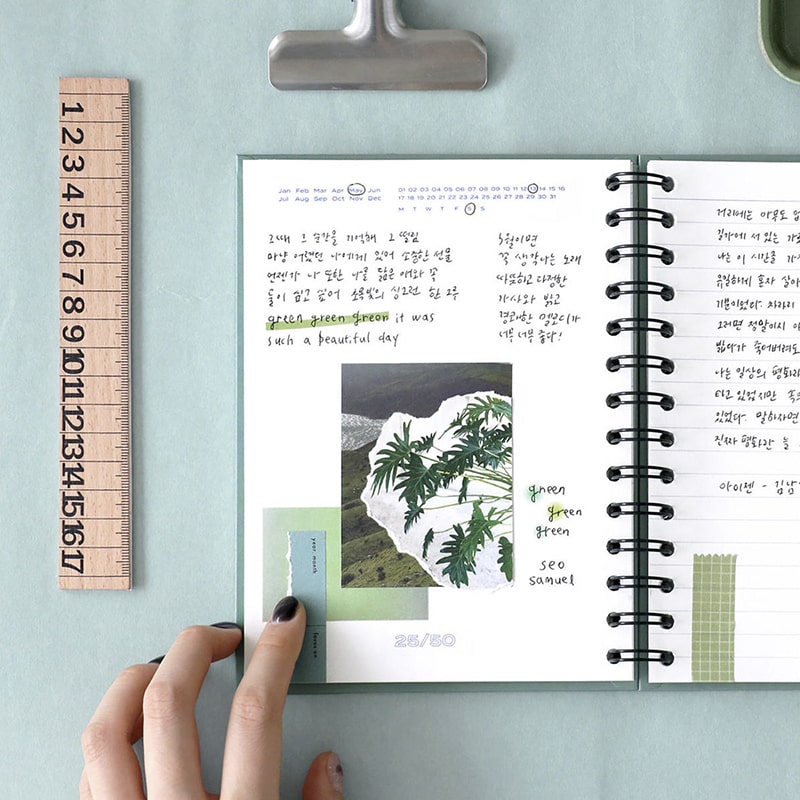 1
2
3
4
5
6
7
8
9
10
11
12
13
14
15
16
17
Jan Feb Mar Apr May Jun
Jul Aug Sep Oct Nov Dec
01 02 03 04 05 06 07 08 09 10 11 12 13 14 15 16
17 18 19 20 21 22 23 24 25 26 27 28 29 30 31
M T W T F S S
그때 그 순간을 기억해 그 떨림
마냥 어렸던 나에게 있어 소중한 선물
언젠가 나 또한 나를 닮은 애와 꼭
둘이 쉬고 싶어 초록빛의 싱그런 한 그루
green green green it was
such a beautiful day
5월이면
꼭 생각나는 노래
따뜻하고 다정한
가사와 밝고
경쾌한 멜로디가
너무너무 좋다!
green
green
green
seo
samuel
year. month
focus on
25/50
거리에는 아무도
길가에 서 있는
나는 이 시간을
유일하게 혼자
기분이었다. 차라리
그러면 정말이지
밟다가 죽어버려도
나는 일상의 평화라
타고 있었지만
있었다. 말하자면
진짜 평화란 늘
아이젠 - 김남